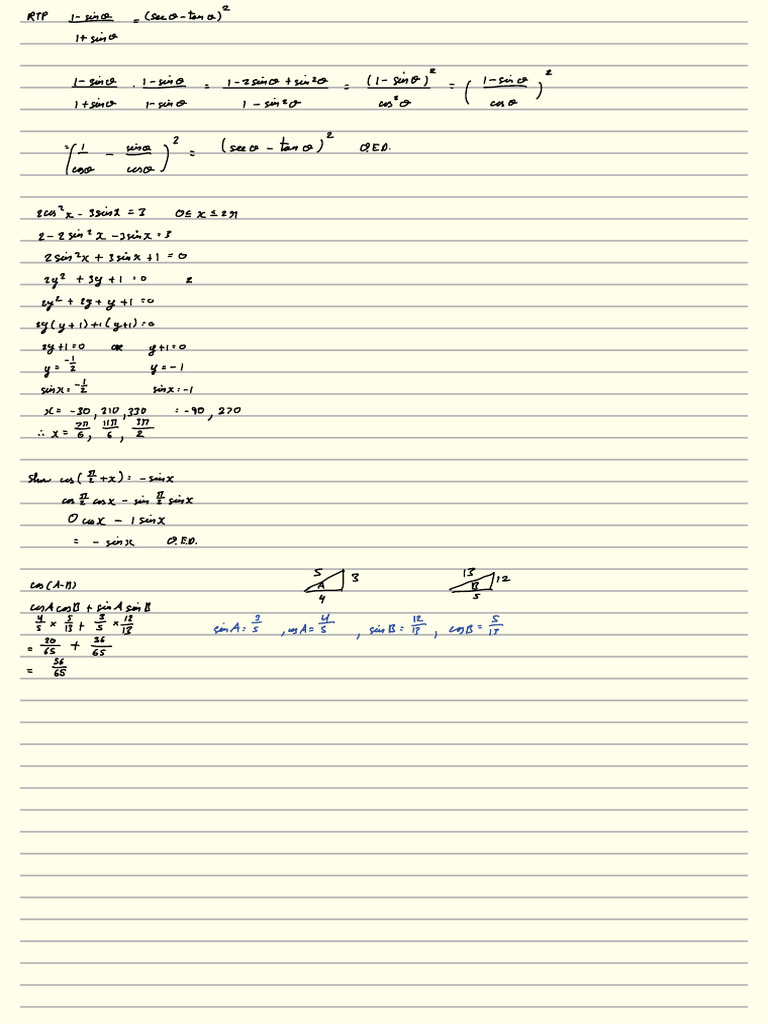 RTP (1-sinθ)/(1+sinθ) = (secθ-tanθ)²
(1-sinθ)/(1+sinθ) · (1-sinθ)/(1-sinθ) = (1-2sinθ+sin²θ)/(1-sin²θ) = (1-sinθ)²/cos²θ = ((1-sinθ)/cosθ)²
= (1/cosθ - sinθ/cosθ)² = (secθ - tanθ)² Q.E.D.
2cos²x - 3sinx = 3 0≤ x ≤ 2π
2-2sin²x -3sinx = 3
2sin²x + 3sinx +1 = 0
2y² + 3y +1 = 0 2
2y² + 2y + y +1 = 0
2y(y+1)+1(y+1)=0
2y+1=0 or y+1=0
y = -1/2 y = -1
sinx = -1/2 sinx = -1
x = -30, 210, 330 = -90, 270
∴ x = 7π/6, 11π/6, 3π/2
Show cos(π/2 + x) = - sinx
cos π/2 cosx - sin π/2 sinx
0 cosx - 1 sinx
= - sinx Q.E.D.
cos(A-B) 5 3 A 4 13 12 B 5
cosA cosB + sinA sinB
4/5 × 5/13 + 3/5 × 12/13 sinA = 3/5, cosA = 4/5, sinB = 12/13, cosB = 5/13
= 20/65 + 36/65
= 56/65